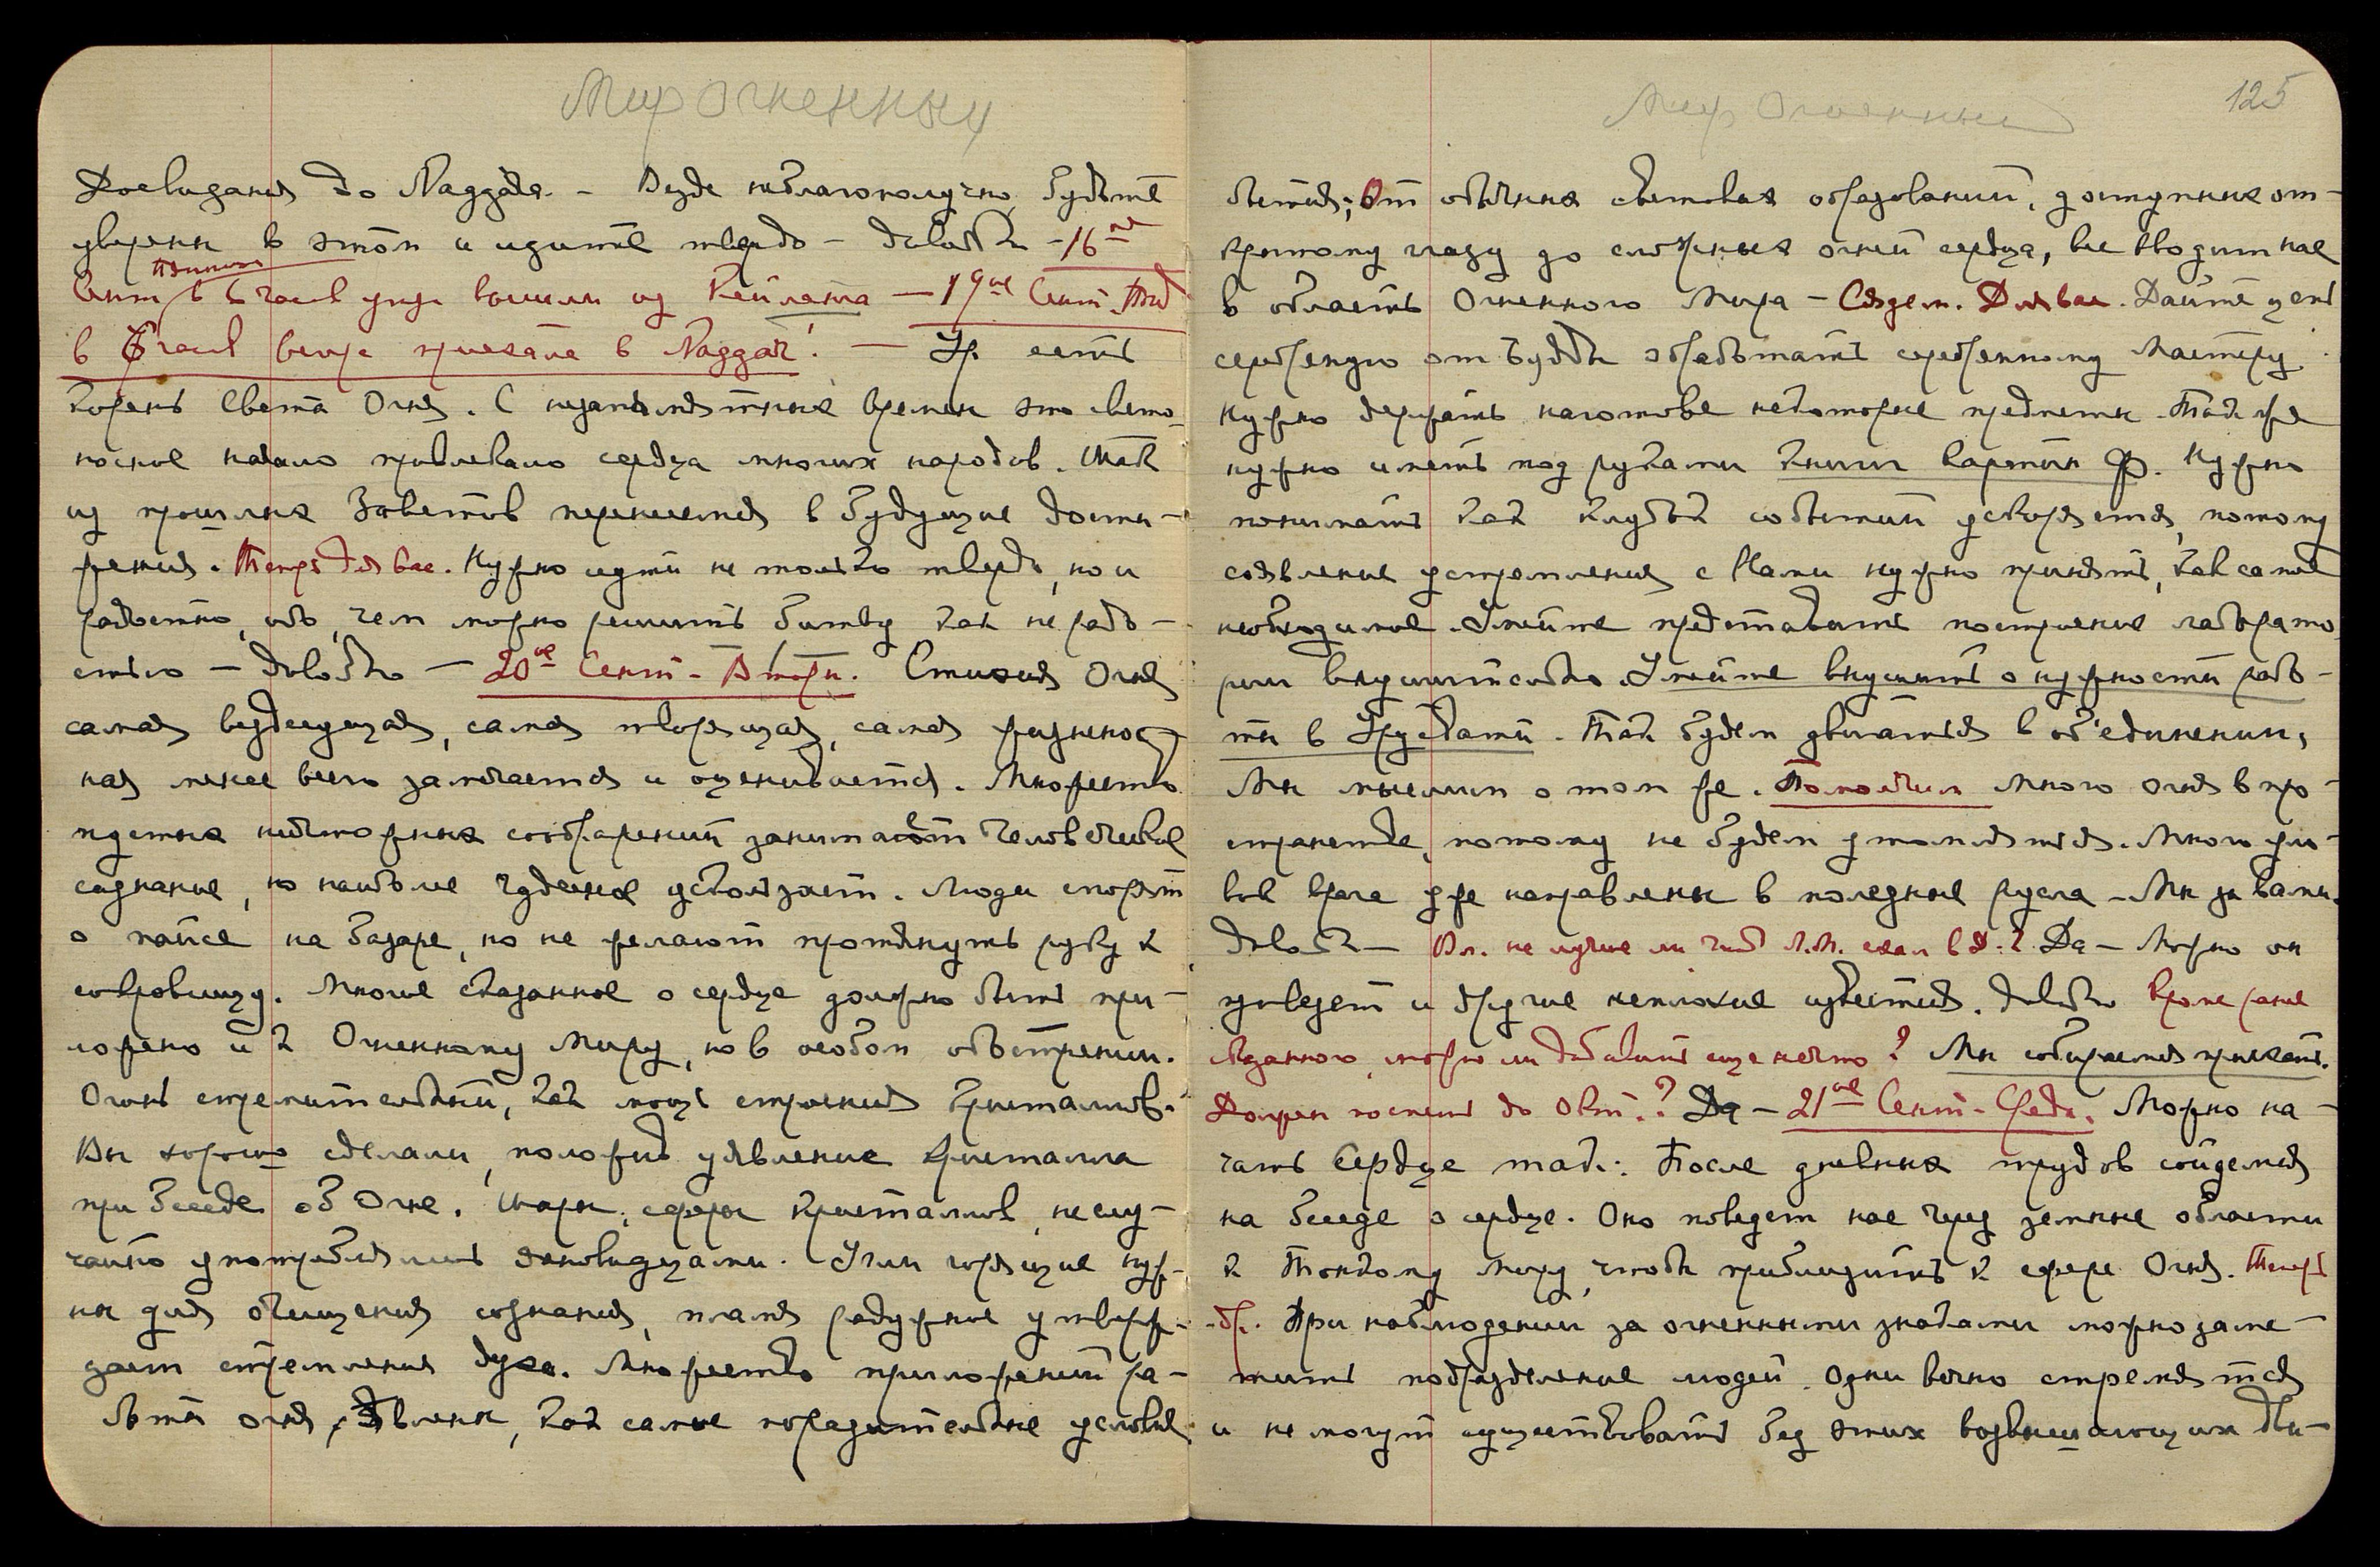 Мир Огненный
До свидания до Naggara. — Везде неблагополучно, будьте
уверены в этом и идите твердо — довольно — 16ое
Пятница
Сент. в 6 часов утра вышли из Кейланга — 19ое Сент. Пнд
в 6 часов вечера приехали в Naggar! — Ур есть
корень Света Огня. С незапамятных времен это свето-
носное начало привлекало сердца многих народов. Так
из прошлых Заветов перенесемся в будущие дости-
жения. Теперь для вас. Нужно идти не только твердо, но и
радостно, ибо, чем можно решить битву как не радо-
стью — довольно — 20ое Сент. - Вторн. Стихия Огня
самая вездесущая, самая творящая, самая жизненос-
ная менее всего замечается и оценивается. Множество
пустых ничтожных соображений занимает человеческое
сознание, но наиболее чудесное ускользает. Люди спорят
о пайсе на базаре, но не желают протянуть руку к
сокровищу. Многое сказанное о сердце должно быть при-
ложено и к Огненному Миру, но в особом обострении.
Огонь стремительный, как мощь строения кристаллов.
Вы хорошо сделали, положив уявление кристалла
при беседе об Огне. Шары, сферы кристаллов не слу-
чайно употреблялись ясновидцами. Угли горящие нуж-
ны для очищения сознания, пламя радужное утверж-
дает стремление духа. Множество приложений ра-
боты огня явлены, как самые поразительные условия
Мир Огненный
125
бытия; От обычных световых образований, доступных от-
крытому глазу до сложных огней сердца, все вводит нас
в область Огненного Мира — Сядем. Для вас. Дайте цепь
серебряную от Будды обработать серебряному мастеру.
Нужно держать наготове некоторые предметы. Также
нужно иметь под руками книги картин Ф. Нужно
понимать как клубок событий ускоряется, потому
соявление устремления с Нами нужно принять, как самое
необходимое. Умейте представить построение лаборато-
рии внушительно. Умейте внушить о нужности рабо-
ты в Урусвати. Так будем двигаться в объединении,
Мы мыслим о том же. Помолчим Много огня в про-
странстве, потому не будем утомляться. Много уло-
вок врага уже направлены в полезные русла — Мы за вами.
Довольно — Вл. не лучше ли чтоб Л.М. ехал в Д.? Да — Можно он
привезет и другие неплохие известия. Довольно Кроме ранее
сказанного, можно ли добавить еще нечто? Мы собираемся приехать.
Должен поспеть до Окт.? Да — 21ое Сент. - Среда. Можно на-
чать Сердце так: После дневных трудов сойдемся
на беседе о сердце. Оно поведет нас через земные области
к Тонкому Миру, чтобы приблизить к сфере Огня. Теперь
др. При наблюдении за огненными знаками можно заме-
тить подразделение людей. Одни вечно стремятся
и не могут существовать без этих возвышающих дви-